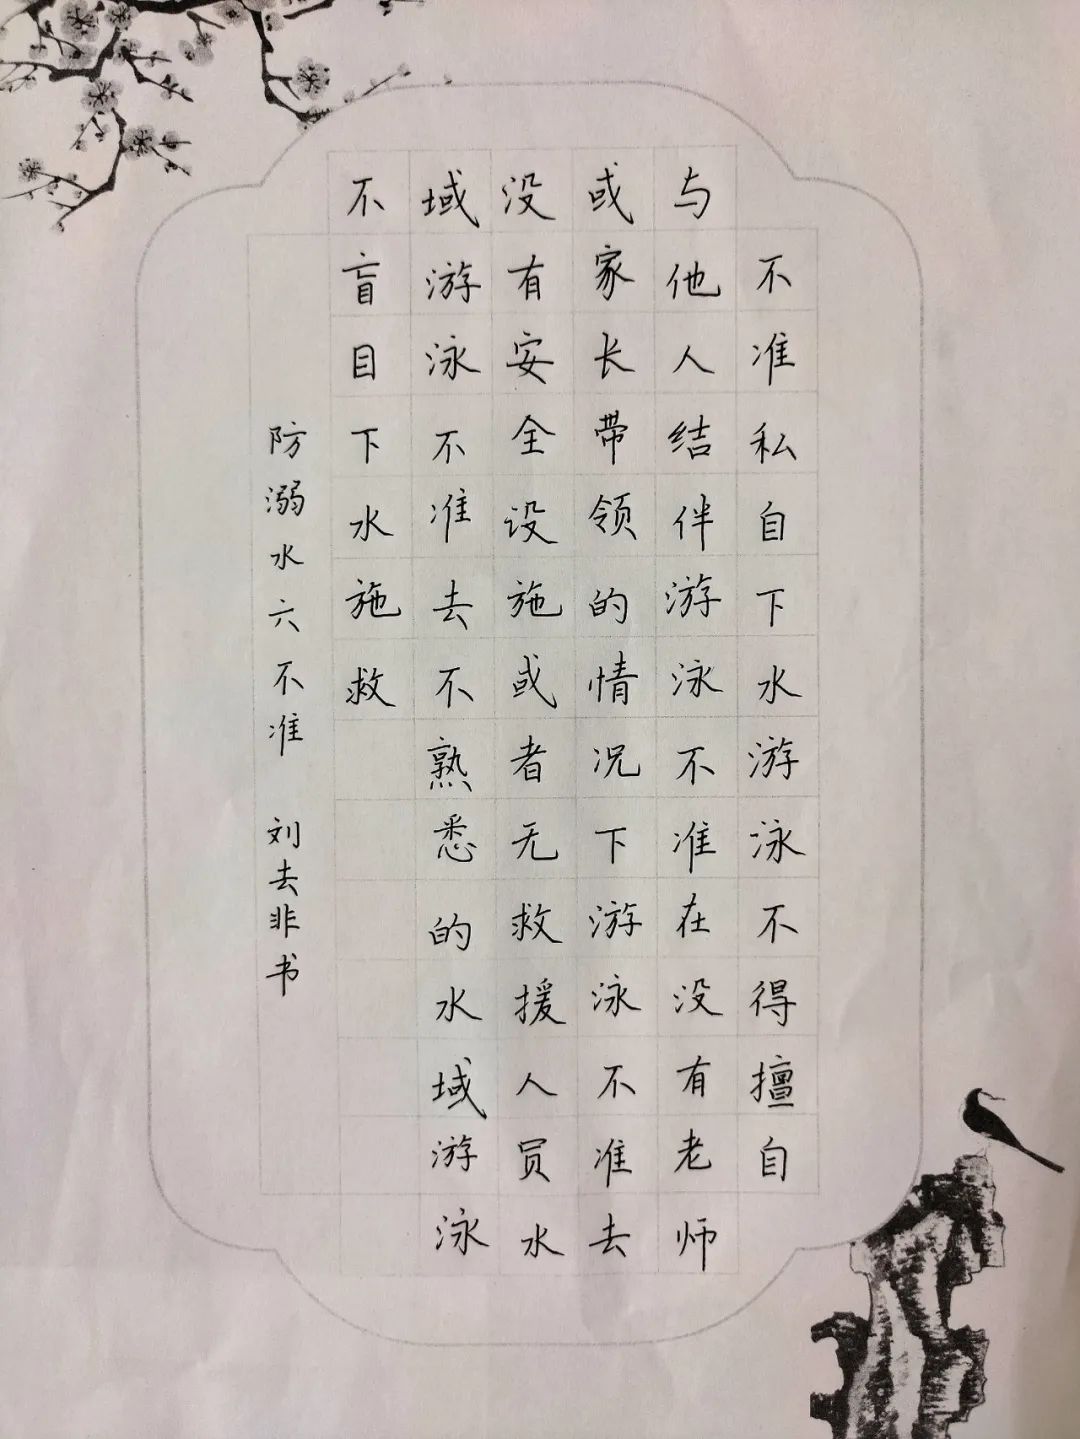 不准私自下水游泳不得擅自
与他人结伴游泳不准在没有老师
或家长带领的情况下游泳不准去
没有安全设施或者无救援人员水
域游泳不准去不熟悉的水域游泳
不盲目下水施救
防溺水六不准 刘去非书